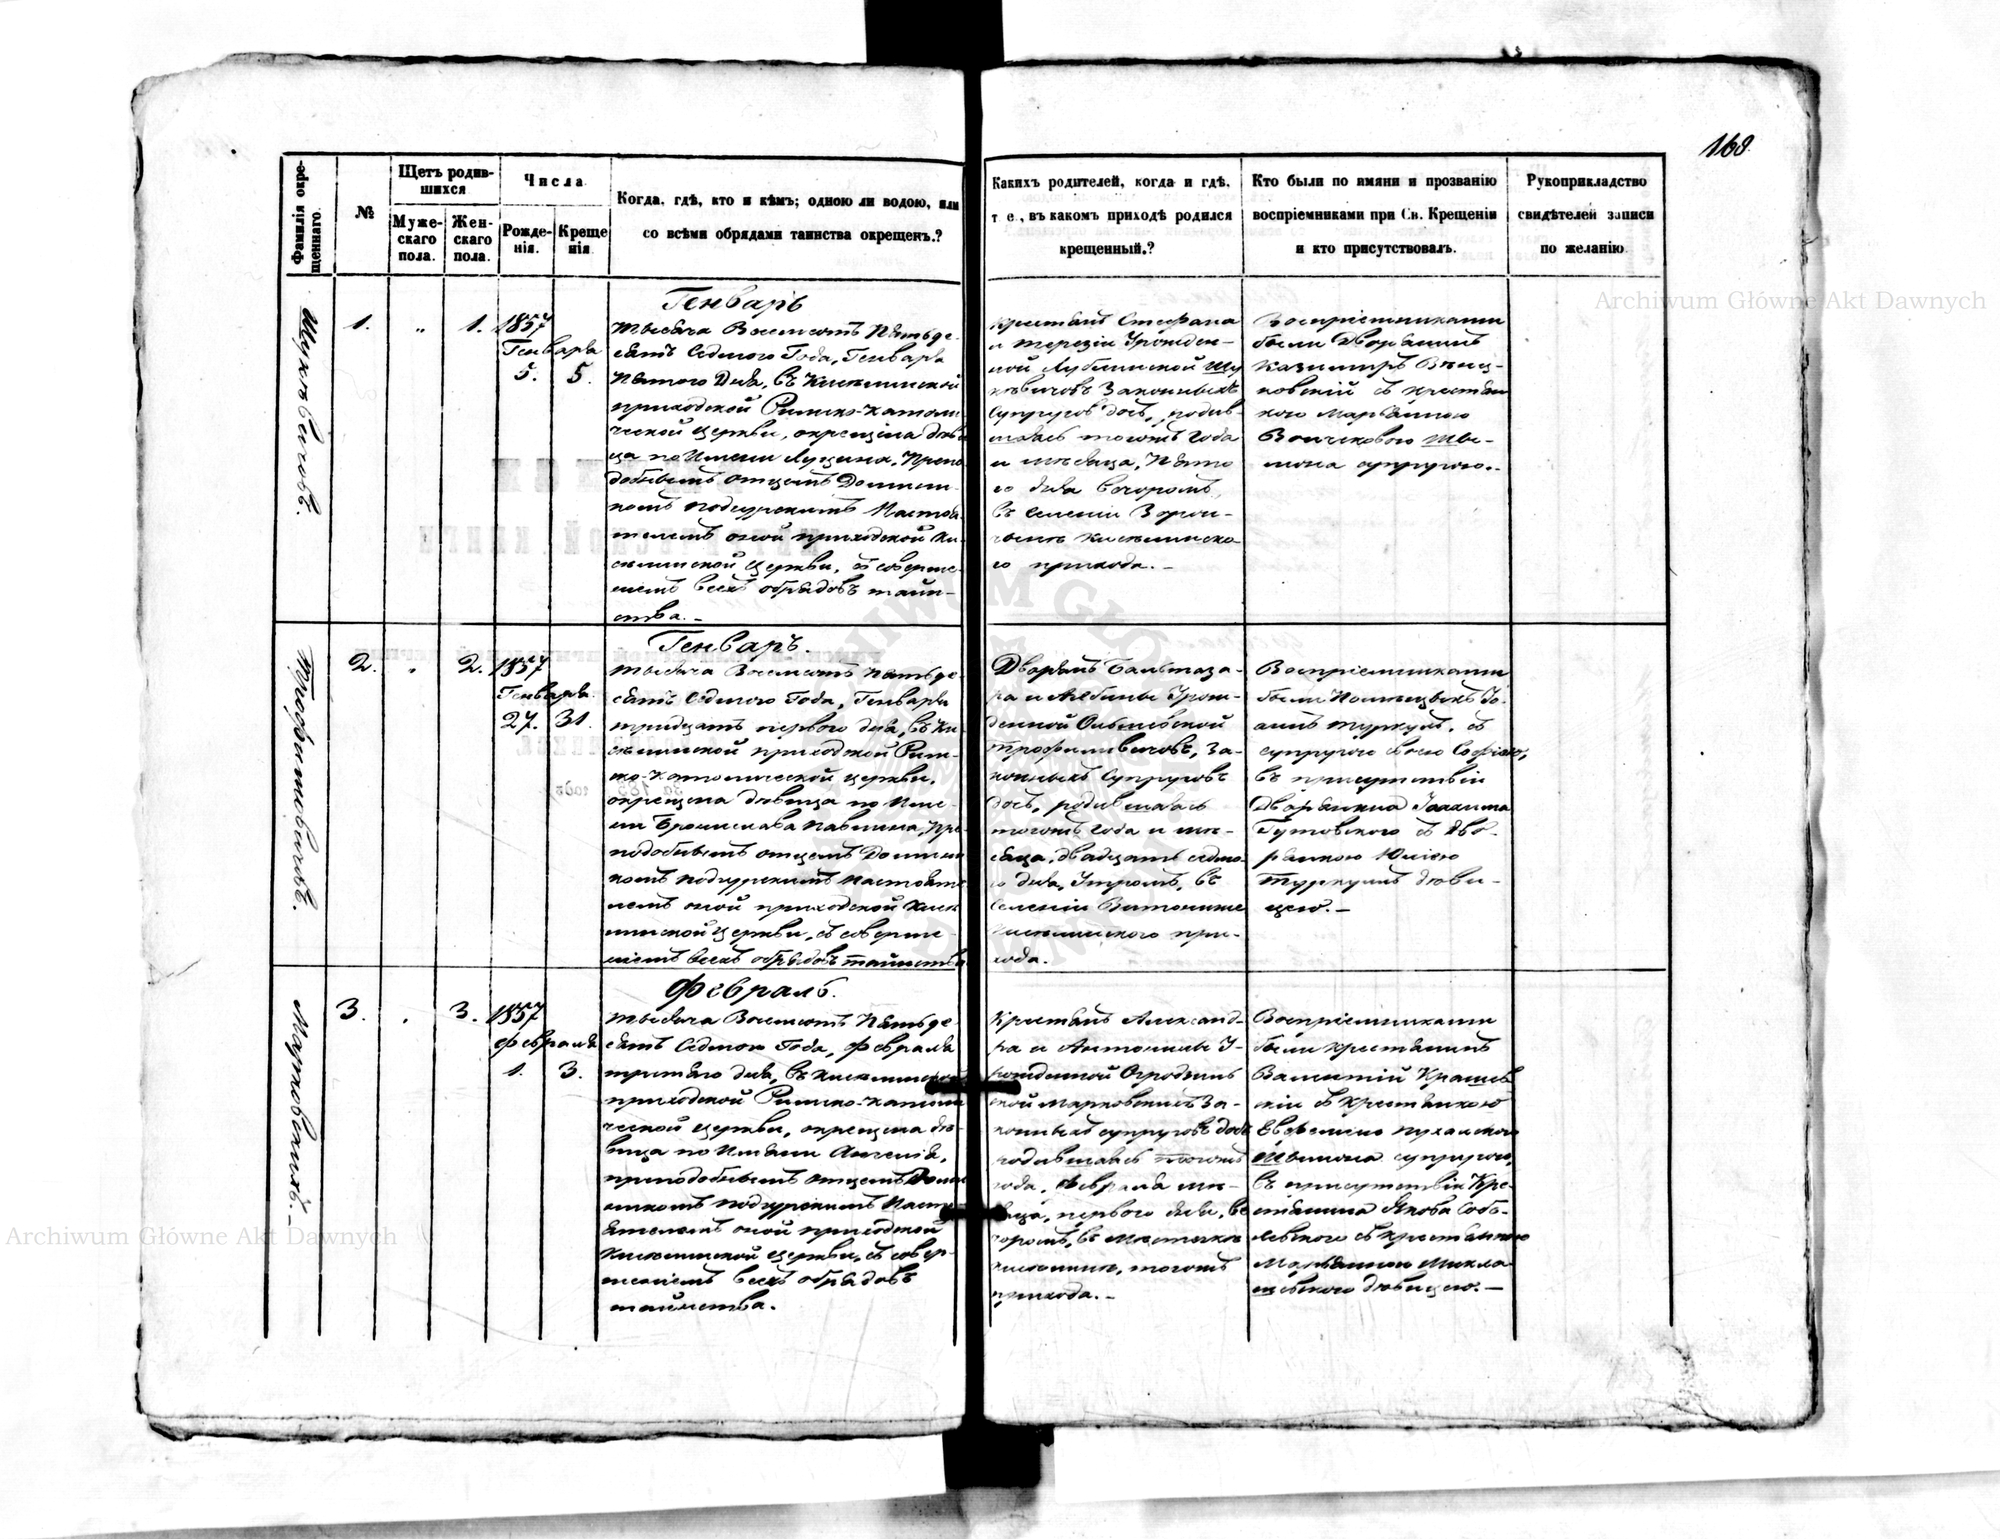 168
Фамилія окре-
щеннаго.
№
Щетъ родив-
шихся
Муже-
скаго
пола.
Жен-
скаго
пола.
Числа
Рожде-
нія.
Креще
нія
Когда, гдѣ, кто и кѣмъ; одною ли водою, или
со всѣми обрядами таинства окрещенъ.?
Какихъ родителей, когда и гдѣ,
т. е., въ какомъ приходѣ родился
крещенный.?
Кто были по имяни и прозванію
воспріемниками при Св. Крещеніи
и кто присутствовалъ.
Рукоприкладство
свидѣтелей записи
по желанію.
1.
"
1.
1857
Генваря
5.
5.
Генварь
Тысяча Восемсотъ Пятьде-
сятъ Седмого Года, Генваря
Пятого Дня, въ Киселинской
приходской Римско-католи-
ческой Церкви, окрещена дѣви
ца по Имени Луцина, Препо-
добнымъ отцемъ Домини-
комъ Подгурскимъ Настоя-
телемъ оной приходской Ки-
селинской Церкви, съ соверше-
ніемъ всехъ обрядовъ таин-
ства. -
Крестьянъ Стефана
и Терезіи Урожден-
ной Лублинской Шу
кевичовъ Законныхъ
Супруговъ дочь, родив-
шаясь тогожъ Года
и мѣсяца, Пято
го дня вечоромъ,
въ селеніи Ворон-
чинѣ Киселинска
го прихода. -
Воспріемниками
были Дворянинъ
Казимиръ
ковскій съ крестьян
кою Марьянною
Войчиковою
мона супругою. -
Трофимовичовъ.
2.
"
2.
1857
Генваря
27.
31.
Генварь.
Тысяча Восемсотъ Пятьде-
сятъ Седмого Года, Генваря
тридцать первого дня, въ Ки-
селинской приходской Рим-
ско-Католической Церкви,
окрещена дѣвица по Име-
ни Брониславa Павлина, Пре-
подобнымъ отцемъ Домини
комъ Подгурскимъ Настояте
лемъ оной приходской Кисе
линской Церкви, съ соверше-
ніемъ всехъ обрядовъ таинства
Дворянъ Бальтаза-
ра и Альбины Урож-
денной Ольшевской
Трофимовичовъ, За-
конныхъ Супруговъ
дочь, родившаясь
тогожъ Года и мѣ-
сяца, двадцать седмо
го дня, Утромъ, въ
Селеніи Витонижѣ
Киселинского при-
хода.
Воспріемниками
были Помещикъ Іо-
аннъ Туркулъ, съ
супругою своею Софіею,
въ присутствіи
Дворянина Іоахима
Гутовского съ дво-
рянкою Юліею
Туркулъ дѣви-
цею. -
Марковскихъ. -
3.
"
3.
1857
Февраля
1.
3.
Февраль.
Тысяча Восемсотъ Пятьде-
сятъ Седмого Года, Февраля
третяго дня, въ Киселинской
приходской Римско-католи
ческой Церкви, окрещена дѣ-
вица по Имяни Ангелія,
преподобнымъ отцемъ Доми
никомъ Подгурскимъ Насто
ятелемъ оной приходской
Киселинской Церкви, съ совер-
шеніемъ всехъ обрядовъ
таинства.
Крестьянъ Александ-
ра и Антонины У-
рожденной Огродзин-
ской Марковскихъ За-
конныхъ супруговъ дочь
родившаясь тогожъ
года, Февраля мѣ-
сяца, первого дня, ве
чоромъ, въ Мѣстечкѣ
Киселинѣ, тогожъ
прихода. -
Воспріемниками
были крестьянинъ
Валентій Крашев-
скій съ крестьянкою
Евфеміею Пухальскою
Шымона супругою,
въ присутствіи Кре-
стьянина Якова Соб-
левского съ крестьянкою
Марьянною Микла
шевскою дѣвицею. -
Archiwum Główne Akt Dawnych
Archiwum Główne Akt Dawnych